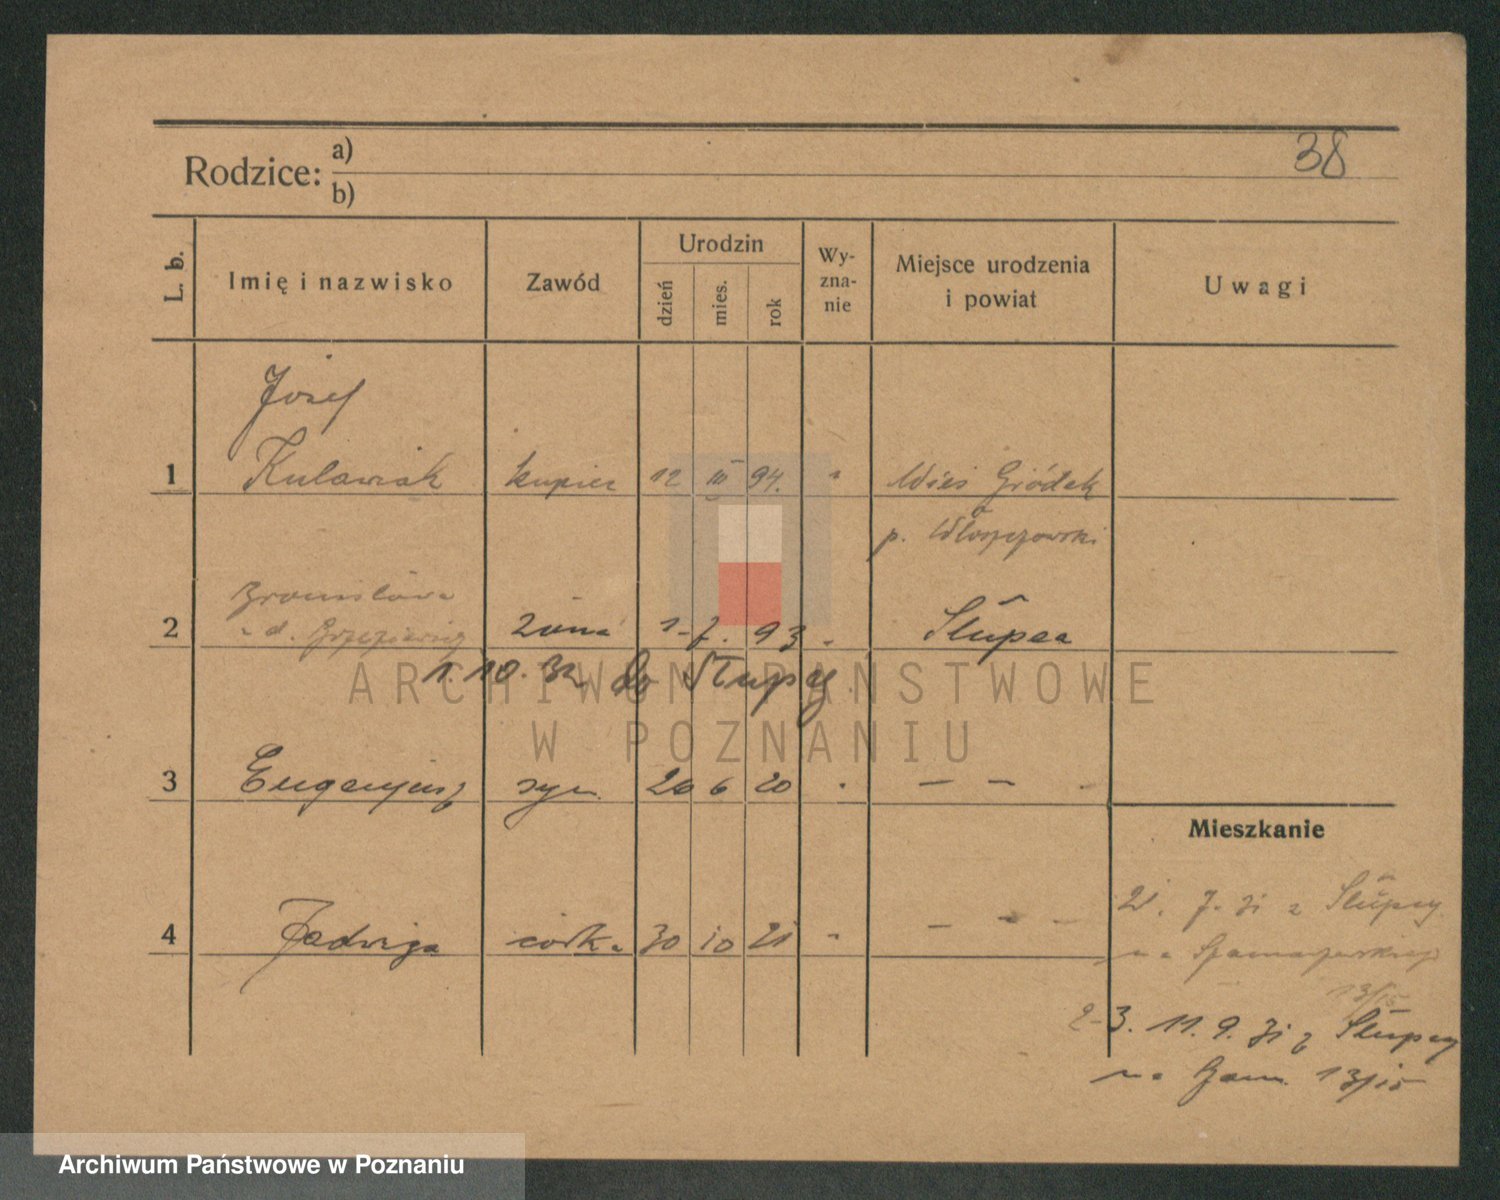 38
Rodzice: a)
b)
L. b.
Imię i nazwisko
Zawód
Urodzin
dzień
mies.
rok
Wy-
zna-
nie
Miejsce urodzenia
i powiat
Uwagi
Józef
1 Kulawiak kupiec 12 III 94. " Wieś Gródek
p. Włoszczowski
Bronisława
2 " d. żona 1 - 7. 93 " Słupca
1. 10. 32 do Słupcy
ARCHIWUM PAŃSTWOWE
W POZNANIU
3 Eugenjusz syn 20 6 20 " — —
Mieszkanie
4 Jadwiga córka 30 10 21 " — — —
7. 31 z Słupcy
na
13/15
2-3. 11. 9. 31 z Słupcy
na 13/15
Archiwum Państwowe w Poznaniu